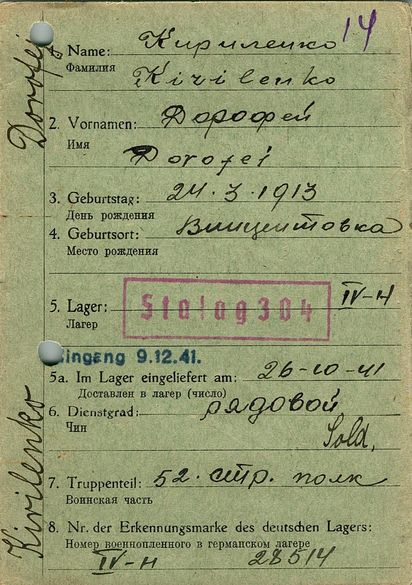 14
1. Name: Кириленко
Фамилия
Kirilenko
2. Vornamen: Дорофей
Имя
Dorofei
3. Geburtstag: 24.3.1913
День рождения
4. Geburtsort: Винцентовка
Место рождения
5. Lager: Stalag 304 IV-H
Лагерь
Eingang 9.12.41.
5a. Im Lager eingeliefert am: 26-10-41
Доставлен в лагерь (число)
6. Dienstgrad: рядовой
Чин
Sold.
7. Truppenteil: 52. стр. полк
Воинская часть
8. Nr. der Erkennungsmarke des deutschen Lagers:
Номер военнопленного в германском лагере
IV-H 28514
Dorofej
Kirilenko